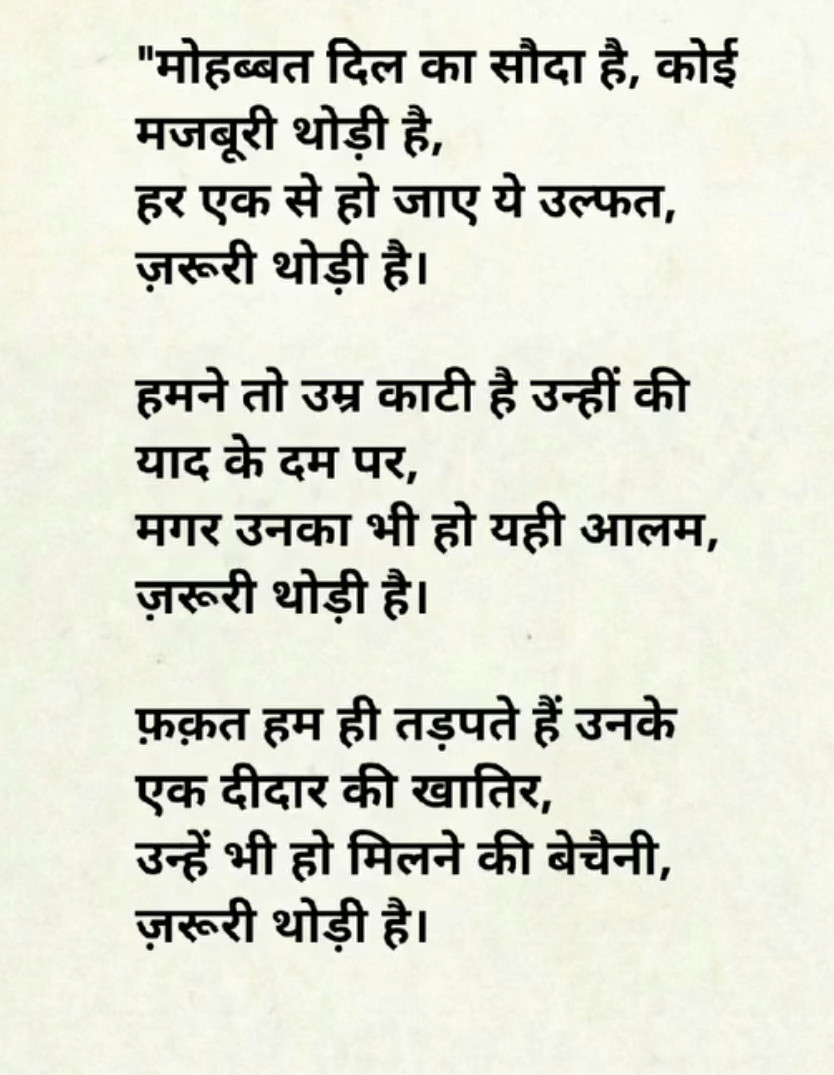 "मोहब्बत दिल का सौदा है, कोई
मजबूरी थोड़ी है,
हर एक से हो जाए ये उल्फत,
ज़रूरी थोड़ी है।
हमने तो उम्र काटी है उन्हीं की
याद के दम पर,
मगर उनका भी हो यही आलम,
ज़रूरी थोड़ी है।
फ़क़त हम ही तड़पते हैं उनके
एक दीदार की खातिर,
उन्हें भी हो मिलने की बेचैनी,
ज़रूरी थोड़ी है।